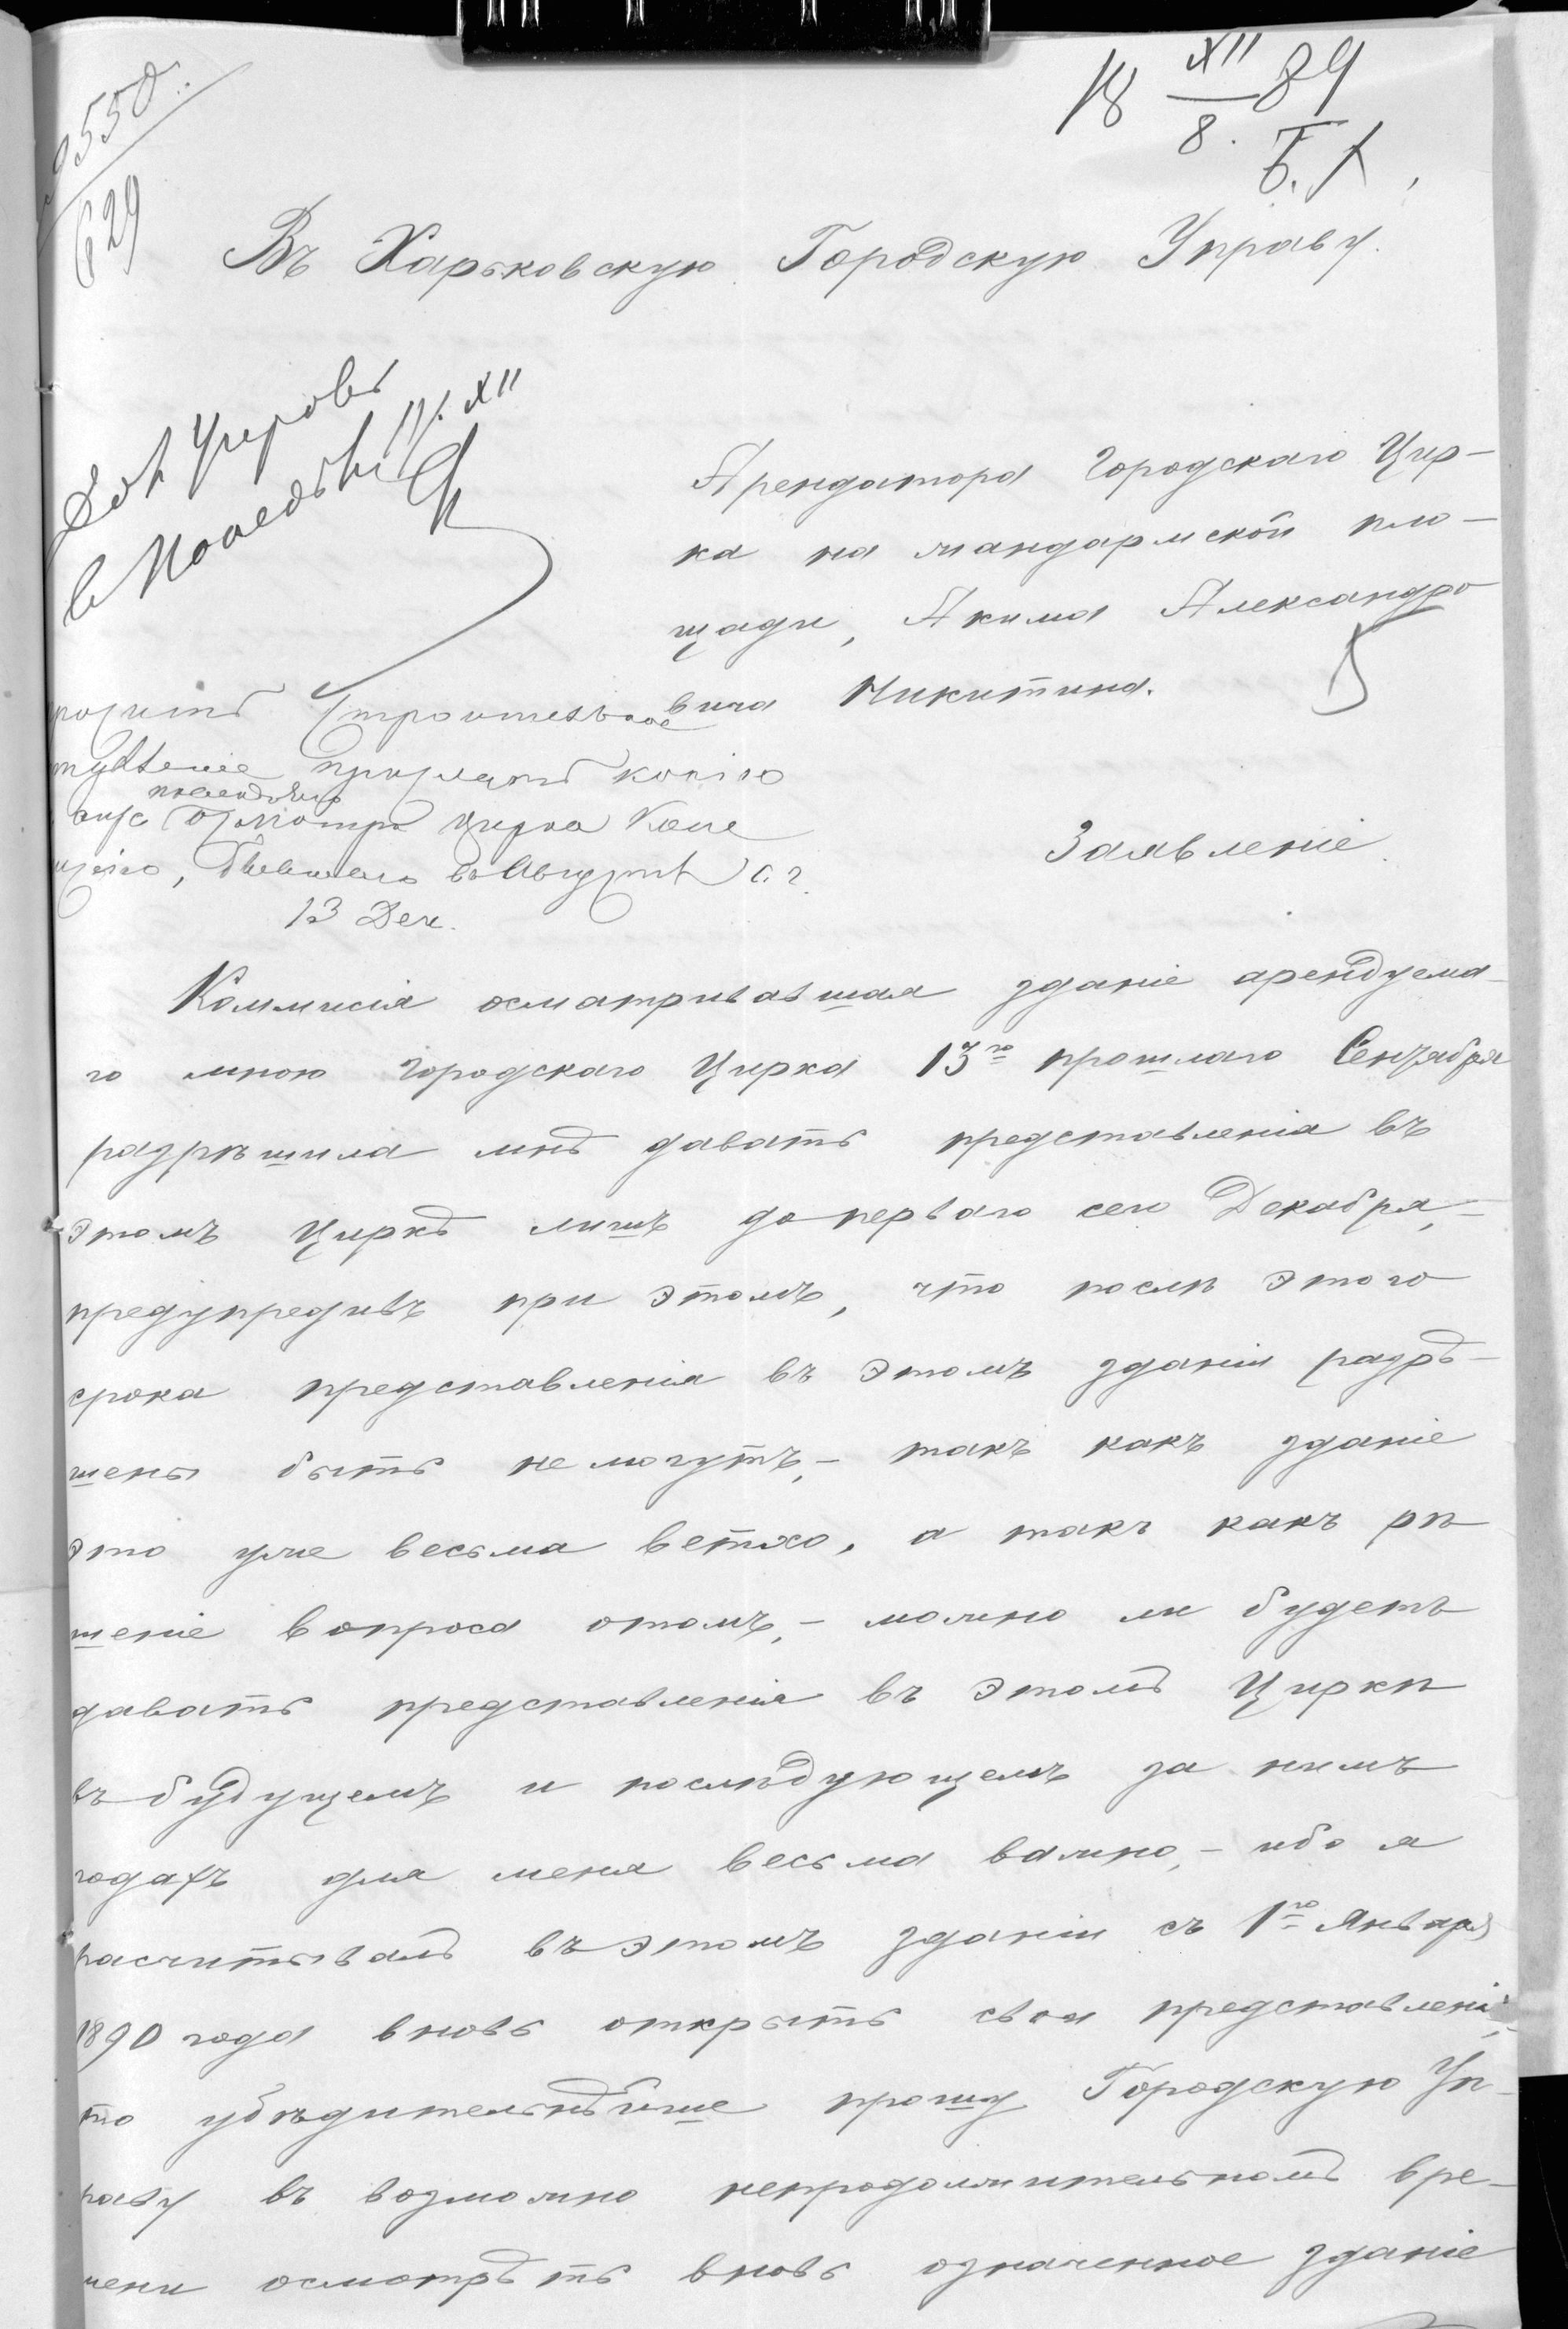 9550
629
18 XII/8. 89
Въ Харьковскую Городскую Управу.
11/XII
Арендатора Городскаго Цир-
ка на жандармской пло-
щади, Акима Александро
вича Никитина.
Строительное
прислать копію
осмотра цирка
, бывшаго въ Августѣ с. г.
13 Дек.
Заявленіе
Коммисія осматривавшая зданіе арендуема-
го мною Городскаго Цирка 13го прошлаго Сентября
разрѣшила мнѣ давать представленія въ
этомъ Циркѣ лишъ до перваго сего Декабря,-
предупредивъ при этомъ, что послѣ этого
срока представленія въ этомъ зданіи разрѣ-
шены быть не могутъ,- такъ какъ зданіе
это уже весьма ветхо, а такъ какъ рѣ
шеніе вопроса отомъ,- можно ли будетъ
давать представленія въ этомъ Циркѣ
въ будущемъ и послѣдующемъ за нимъ
годахъ для меня весьма важно,- ибо я
расчитывалъ въ этомъ зданіи съ 1го Января
1890 года вновь открыть свои представленія,-
то убѣдительнѣйше прошу Городскую Уп-
раву въ возможно непродолжительномъ вре-
мени осмотрѣть вновь означенное зданіе